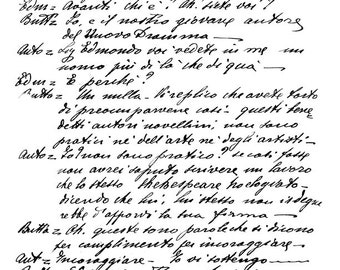 Edm = Avanti chi è? Ah. siete voi?
Butt = Io, e il nostro giovane autore
del Nuovo Dramma —
Auto = Sig Edmondo voi vedete in me un
uomo più di là che di quà —
Edm = E perchè?
Butto = Un nulla — Vi replico che avete torto
di preoccuparvene così — questi bene
detti autori novellini, non sono
pratici nè dell'arte nè degli artisti —
Auto = Io non sono pratico? se così fosse
non avrei saputo scrivere un lavoro
che lo stesso Shakespeare ha elogiato
dicendo che lui, lui stesso non isdegne
rebbe d'apporvi la sua firma —
Butt = Oh, queste sono parole che si dicono
per complimento per incoraggiare —
Aut = Incoraggiare — Io vi sostengo —